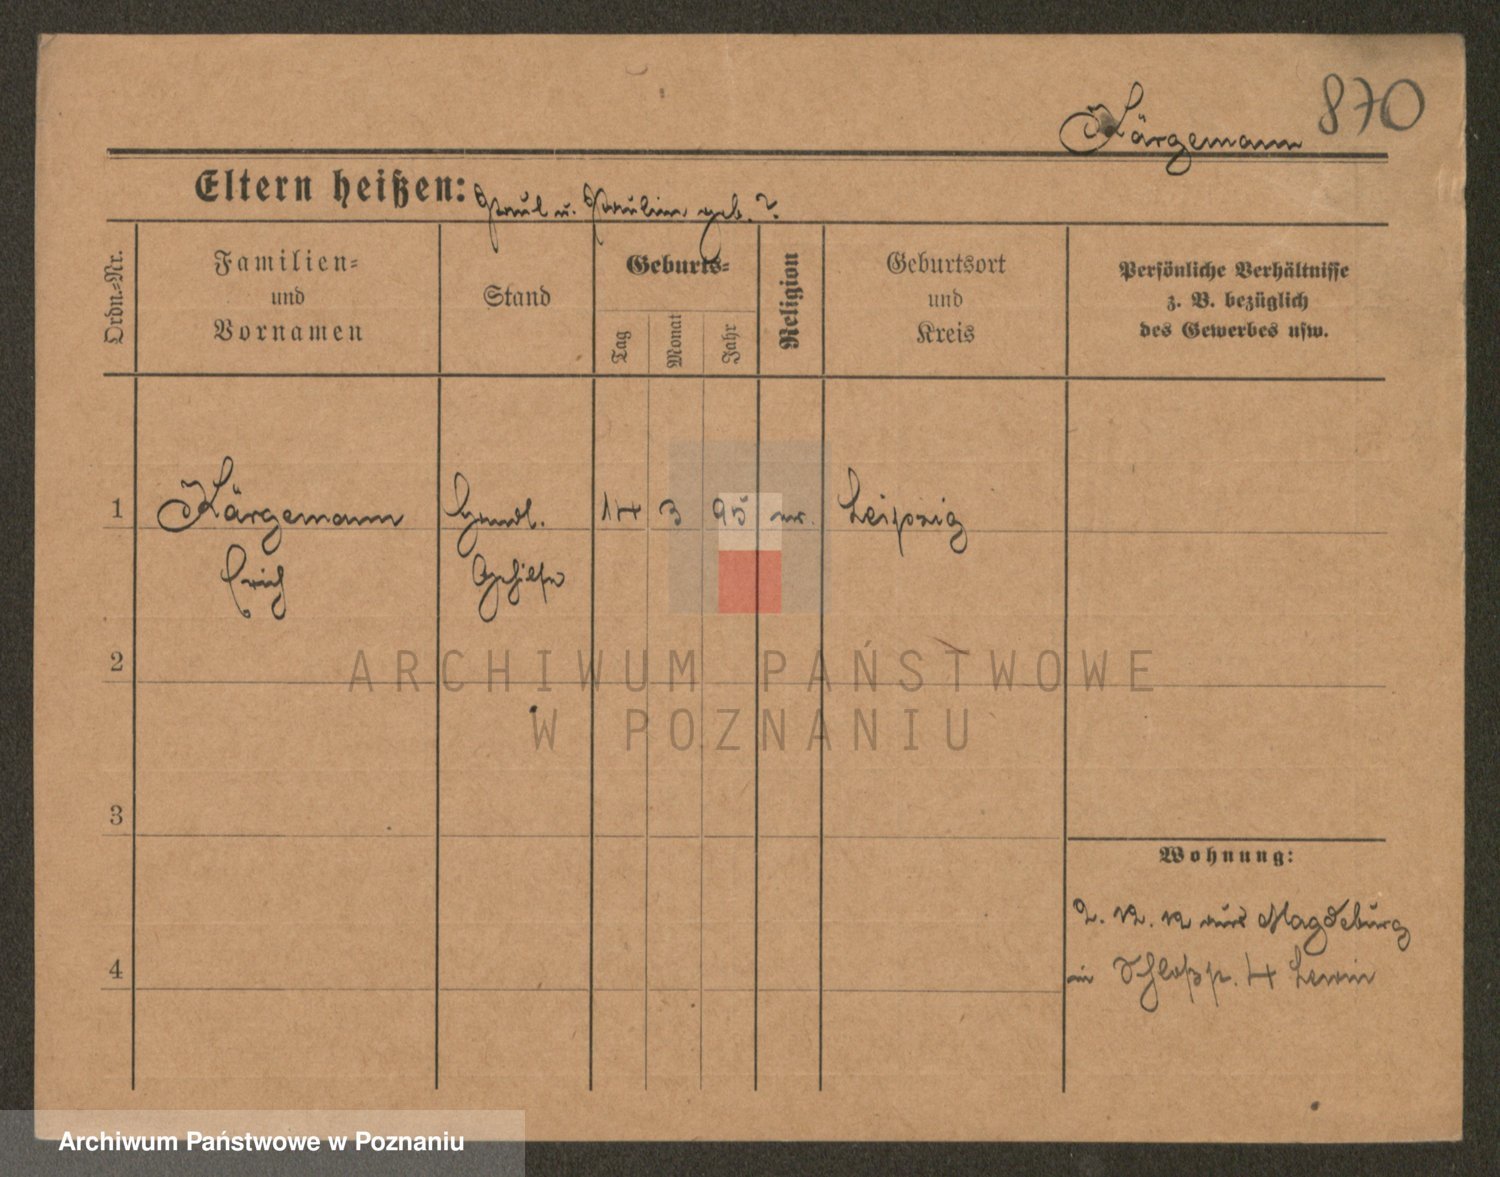 870
Kärgemann
Eltern heißen: Paul u. Paulin geb. ?.
Ordn.-Nr.
Familien-
und
Vornamen
Stand
Geburts-
Tag
Monat
Jahr
Religion
Geburtsort
und
Kreis
Persönliche Verhältnisse
z. B. bezüglich
des Gewerbes usw.
1 Kärgemann Handl. 14 3 95 Leipzig
Erich Gehilfe
2
ARCHIWUM PAŃSTWOWE
W POZNANIU
3
Wohnung:
2. 12. 12 aus Magdeburg
4
in Schloßstr. 4 Lewin
Archiwum Państwowe w Poznaniu